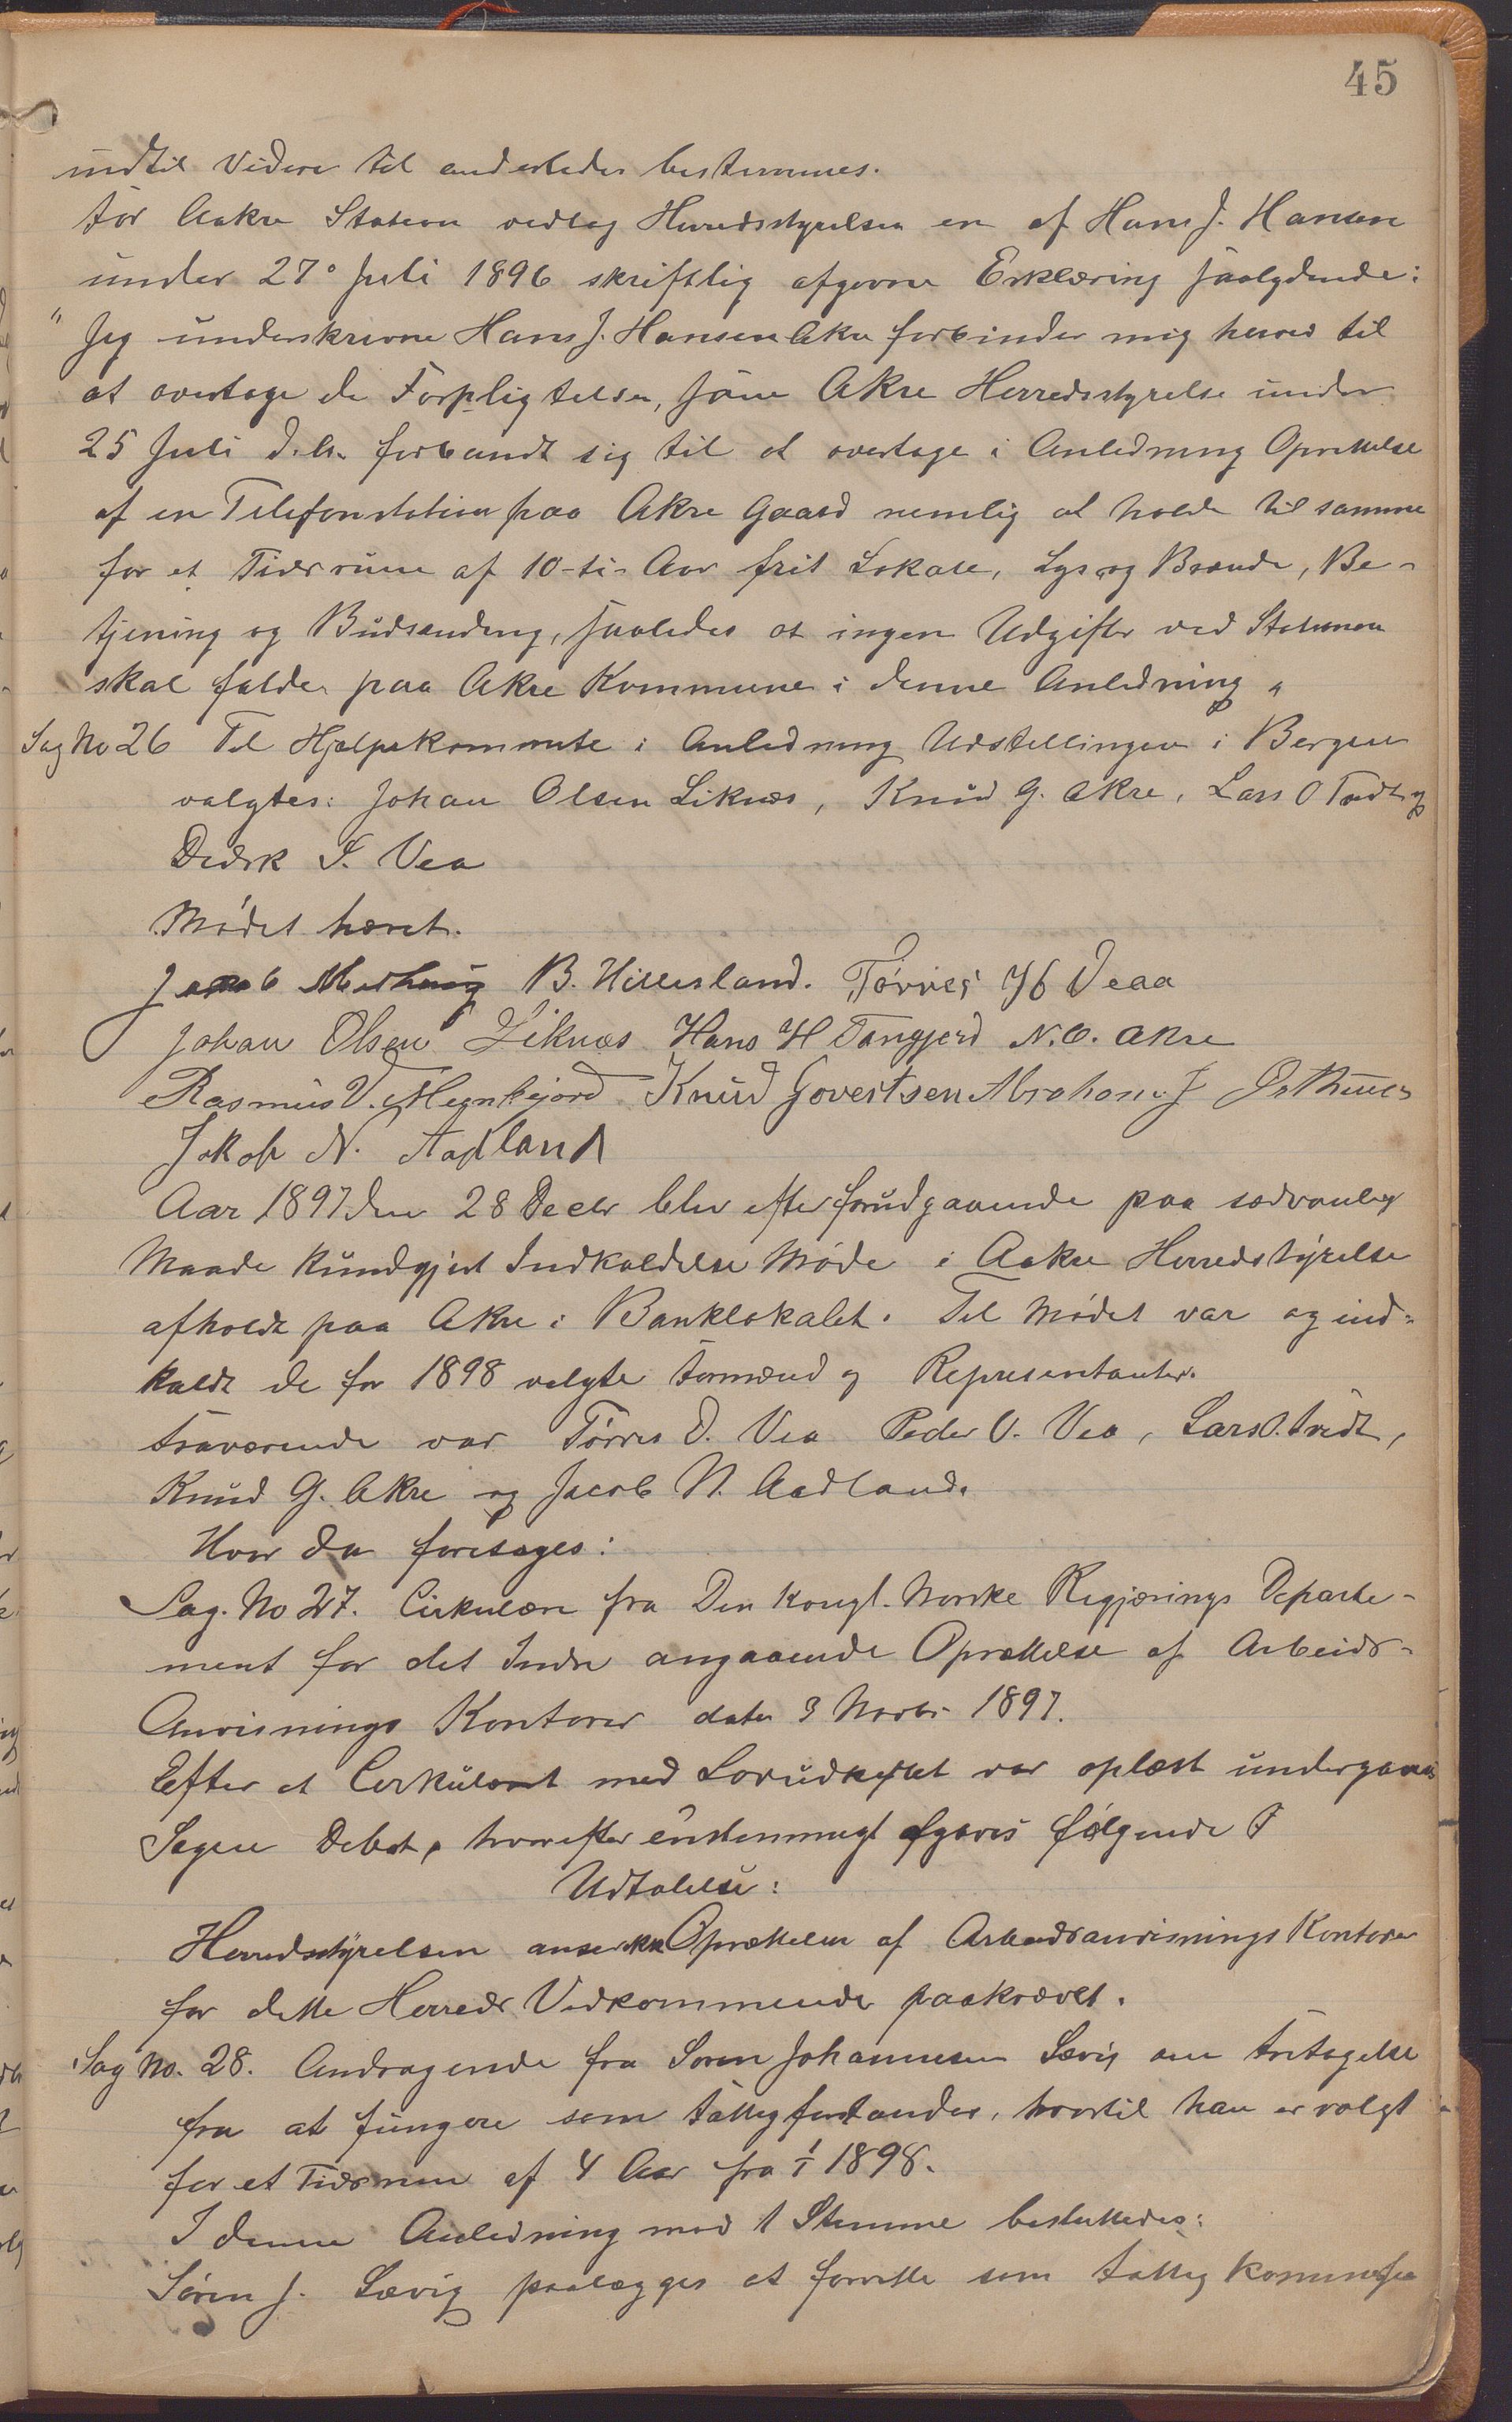 45
indtil Videre til anderledes bestemmes.
For Aakre Station vedtog Herredsstyrelsen en af Hans J. Hansen
under 27° Juli 1896 skriftlig afgivne Erklæring saalydende:
" Jeg underskrevne Hans J. Hansen Akre forbinder mig herved til
at overtage de Forpligtelser, som Akre Herredsstyrelse under
25 Juli d.A. forbandt sig til at overtage i Anledning Oprettelse
af en Telefonstation paa Akre Gaard nemlig at holde til samme
for et Tidsrum af 10-ti- Aar frit Lokale, Lys og Brænde, Be-
tjening og Budsending, saaledes at ingen Udgifter ved Stationen
skal falde paa Akre Kommune i denne Anledning "
Sag No 26 Til Hjælpekomite i Anledning Udstillingen i Bergen
valgtes: Johan Olsen Liknes, Knud G. Akre, Lars O Tvedt og
Didrik T. Vea
Mødet hævet.
Jacob Medhaug B. Hillesland. Tørres Veaa
Johan Olsen Liknæs Hans H Tangjerd N.O. Akre
Rasmus V. Munkejord Knud Govertsen Abraham J Østhuus
Jakob N. Aadland
Aar 1897 den 28 Decbr blev efter forudgaaende paa sædvanlig
Maade kundgjort Indkaldelse Møde i Aakre Herredstyrelse
afholdt paa Akre i Banklokalet. Til Mødet var og ind-
kaldt de for 1898 valgte Formænd og Representanter.
Fraværende var Tørres D. Vea Peder O. Vea, Lars O. Tvedt,
Knud G. Akre og Jacob N. Aadland.
Hvor da foretages:
Sag. No 27. Cirkulære fra Den kongl. Norske Regjærings Departe-
ment for det Indre angaaende Oprettelse af Arbeids-
Anvisnings Kontorer dater 3 Novbr 1897.
Efter at Cirkulæret med Lovudkastet var oplæst undergaves
Sagen Debat, hvorefter enstemmigt afgaves følgende
Udtalelse:
Herredsstyrelsen anser ikke Oprettelsen af ArbeidsanvisningsKontorer
for dette Herreds Vedkommende paakrævet.
Sag No. 28. Andragende fra Søren Johannesen Sævig om Fritagelse
fra at fungere som Fattigforstander, hvortil han er valgt
for et Tidsrum af 4 Aar fra 1/1 1898.
I denne Anledning mod 1 Stemme besluttedes:
Søren J. Sævig paalægges at forrette som Fattig